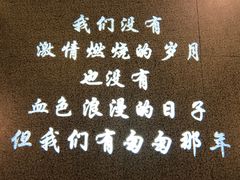 我们没有
激情燃烧的岁月
也没有
血色浪漫的日子
但我们有匆匆那年